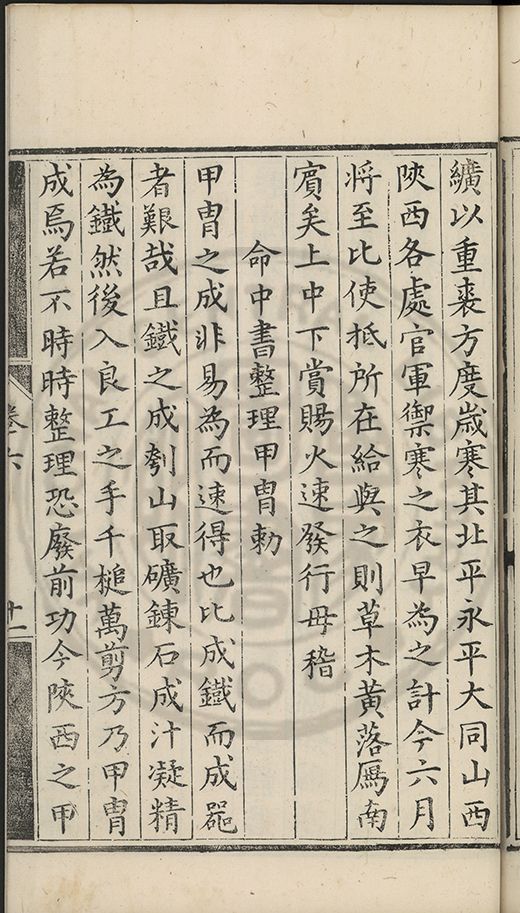 纊以重裘方度歲寒其北平永平大同山西
陝西各處官軍禦寒之衣早為之計今六月
將至比使抵所在給與之則草木黃落鴈南
賓矣上中下賞賜火速發行毋稽
命中書整理甲冑勅
甲冑之成非易為而速得也比成鐵而成噐
者艱哉且鐵之成刳山取礦鍊石成汁凝精
為鐵然後入良工之手千槌萬剪方乃甲冑
成焉若不時時整理恐廢前功今陝西之甲
卷六
十一